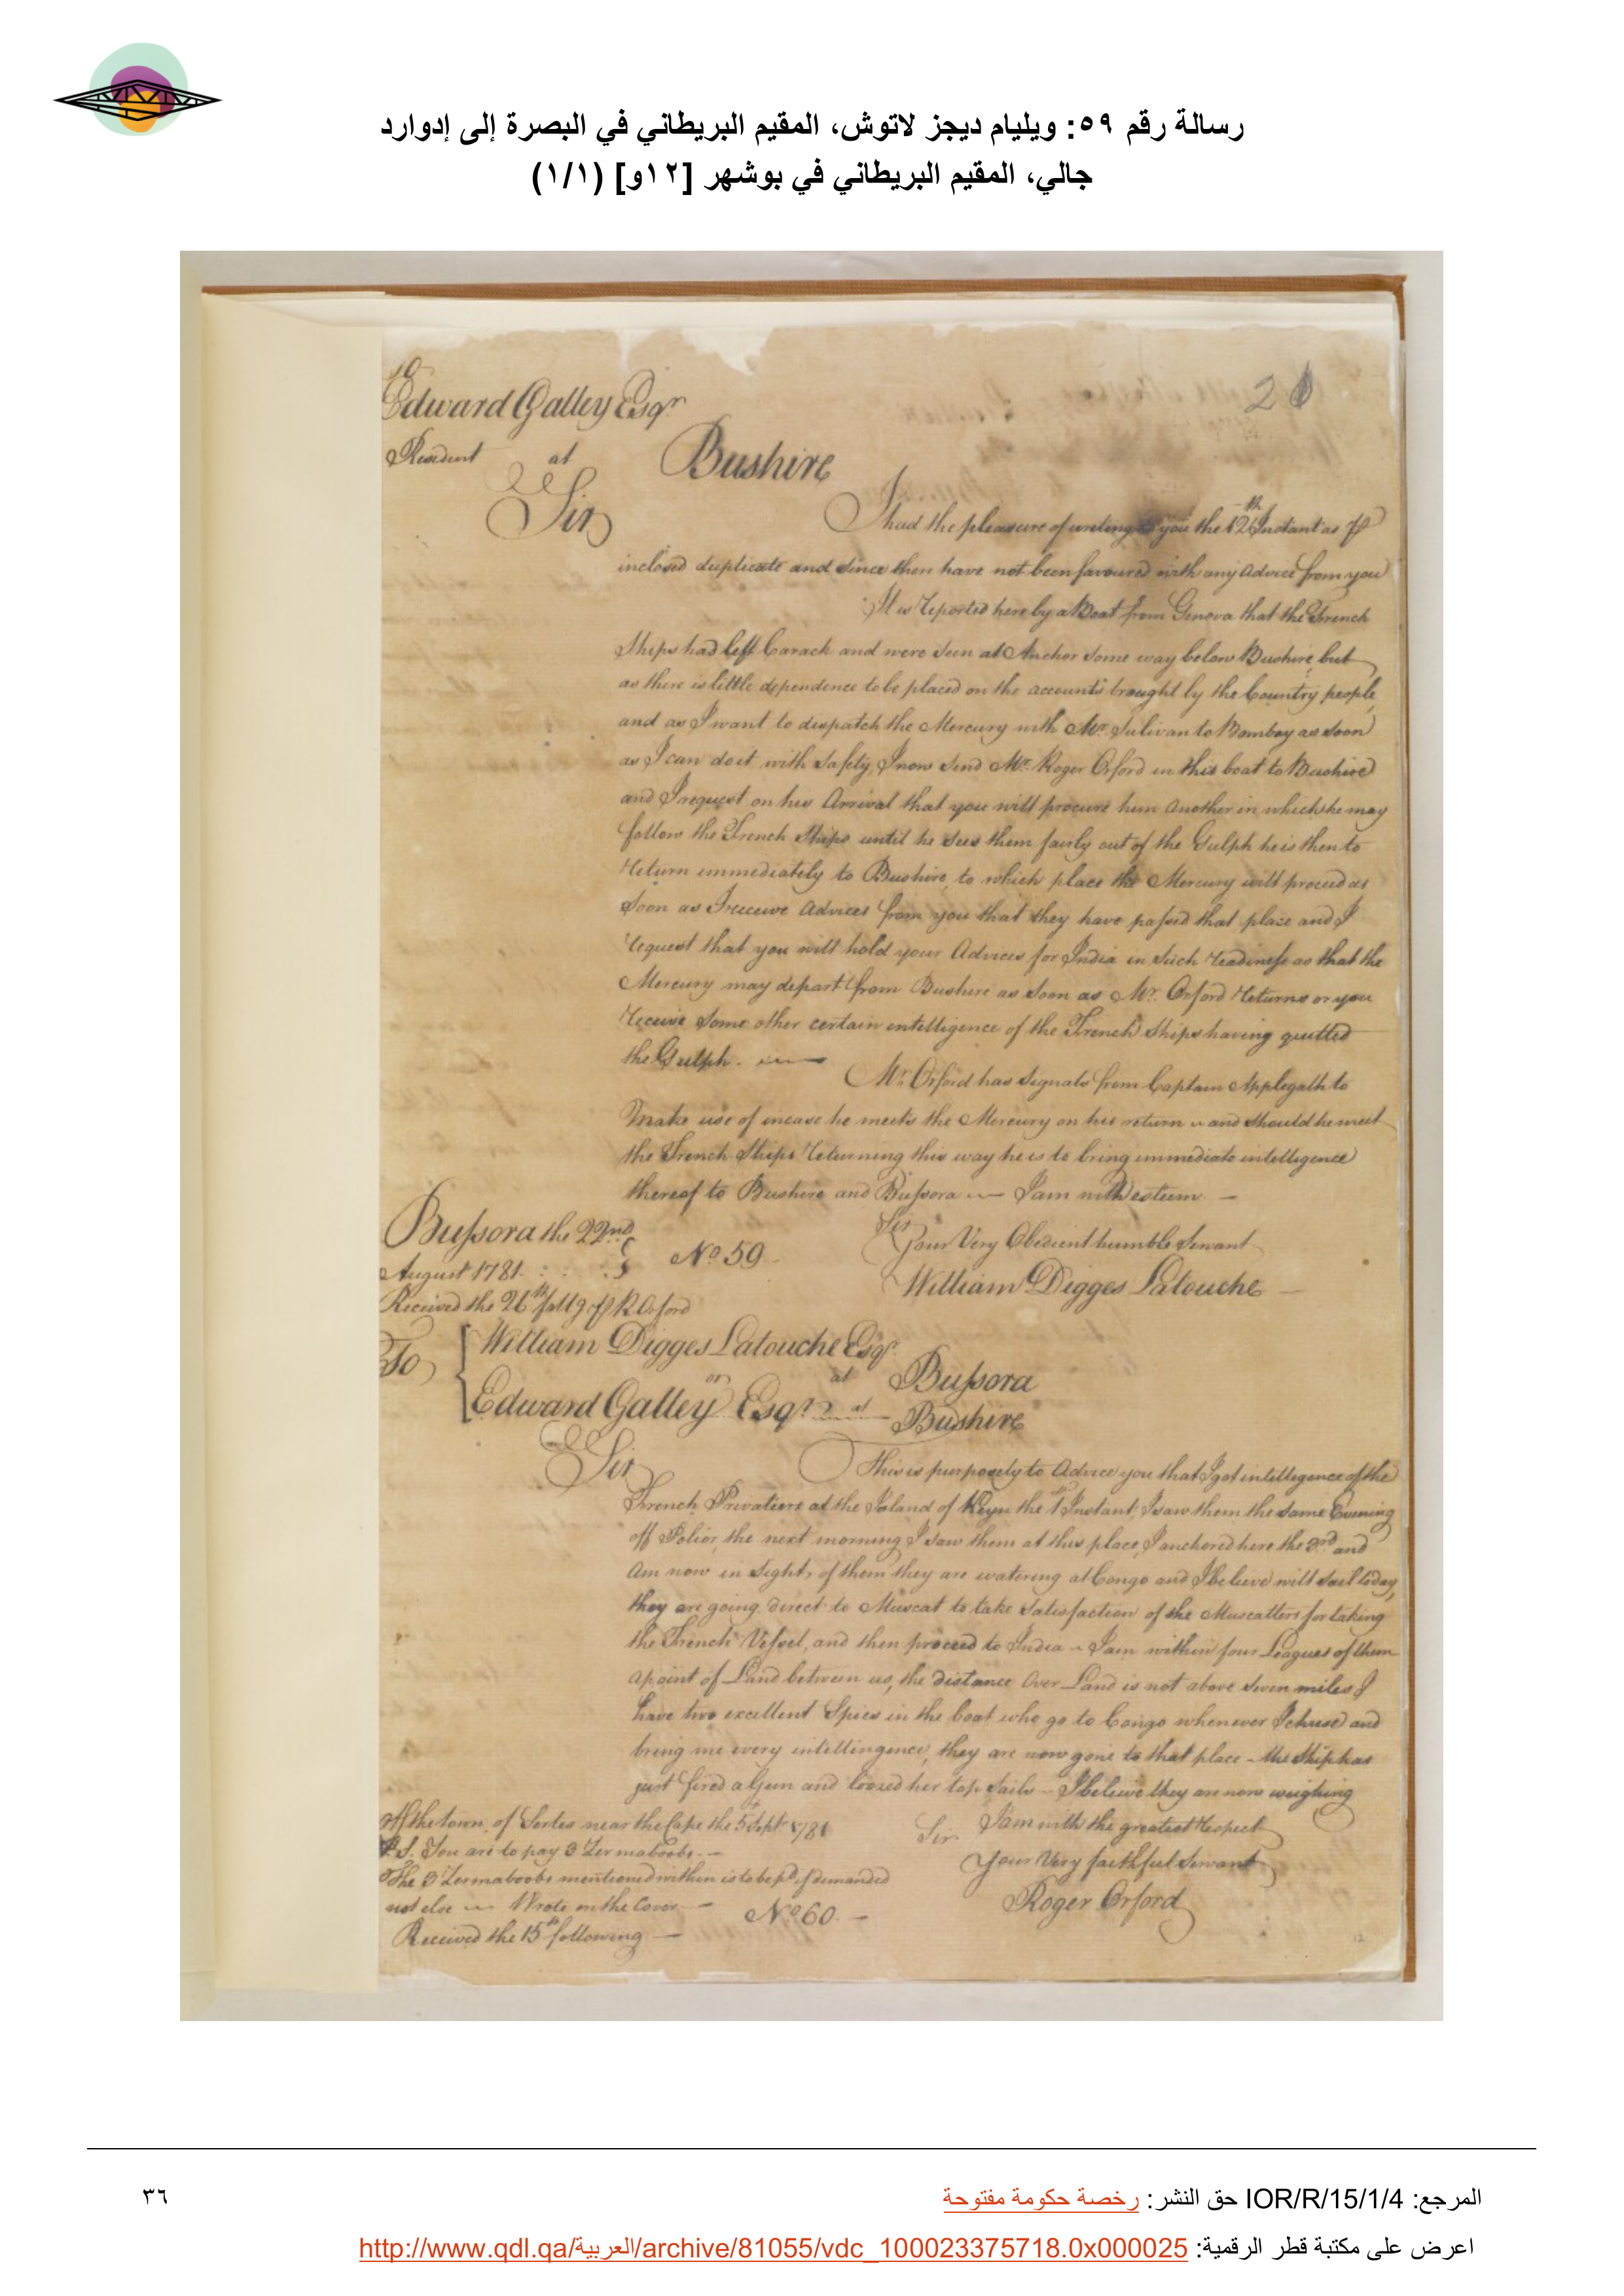 رسالة رقم ٥٩: ويليام ديجز لاتوش، المقيم البريطاني في البصرة إلى إدوارد
جالي، المقيم البريطاني في بوشهر [١٢و] (١/١)
To
Edward Galley Esqr
Resident at Bushire
21
Sir
I had the pleasure of writing to you the 12th Instant as p
inclosed duplicate and since then have not been favoured with any Advice from you
It is reported here by a Boat from Genova that the French
Ships had left Carack and were seen at Anchor some way below Bushire, but
as there is little dependence to be placed on the accounts brought by the Country people,
and as I want to dispatch the Mercury with Mr. Sulivan to Bombay as soon
as I can do it with safety, I now send Mr. Roger Orford in this boat to Bushire
and I request on his Arrival that you will procure him another in which he may
follow the French Ships until he sees them fairly out of the Gulph he is then to
return immediately to Bushire, to which place the Mercury will proceed as
soon as I receive Advices from you that they have passed that place and I
request that you will hold your Advices for India in such readiness as that the
Mercury may depart from Bushire as soon as Mr. Orford returns or you
receive some other certain intelligence of the French Ships having quitted
the Gulph.
Mr. Orford has signals from Captain Applegath to
Make use of incase he meets the Mercury on his return and should he meet
the French Ships returning this way he is to bring immediate intelligence
thereof to Bushire and Bussora I am with esteem
Sir
Your Very Obedient humble Servant
William Digges Latouche
Bussora the 22nd
August 1781
No 59
Received the 26th follg p R Orford
To
William Digges Latouche Esqr at Bussora
or
Edward Galley Esqr at Bushire
Sir
This is purposely to Advice you that I got intelligence of the
French Privatiers at the Island of Keyn the 1st Instant, I saw them the same Evening
off Polior, the next morning I saw them at this place, I anchored here the 3rd and
Am now in sight of them they are watering at Congo and I believe will sail today,
they are going direct to Muscat to take satisfaction of the Muscatters for taking
the French Vessel, and then proceed to India I am within four Leagues of them
a point of Land between us, the distance Over Land is not above seven miles I
have two excellent Spies in the boat who go to Congo whenever I chuse and
bring me every intellingence, they are now gone to that place - the Ship has
just fired a Gun and loosed her top sails - I believe they are now weighing
Off the town of Sertes near the Cape the 5th Sept. 1781
Sir I am with the greatest respect
Your Very faithful Servant
Roger Orford
P.S. You are to pay 3 Zermaboobs.
The 3 Zermaboobs mentioned within is to be pd. if demanded
not else Wrote on the Cover
No 60.
Received the 15th following
12
المرجع: IOR/R/15/1/4 حق النشر: رخصة حكومة مفتوحة
٣٦
اعرض على مكتبة قطر الرقمية: http://www.qdl.qa/العربية/archive/81055/vdc_100023375718.0x000025